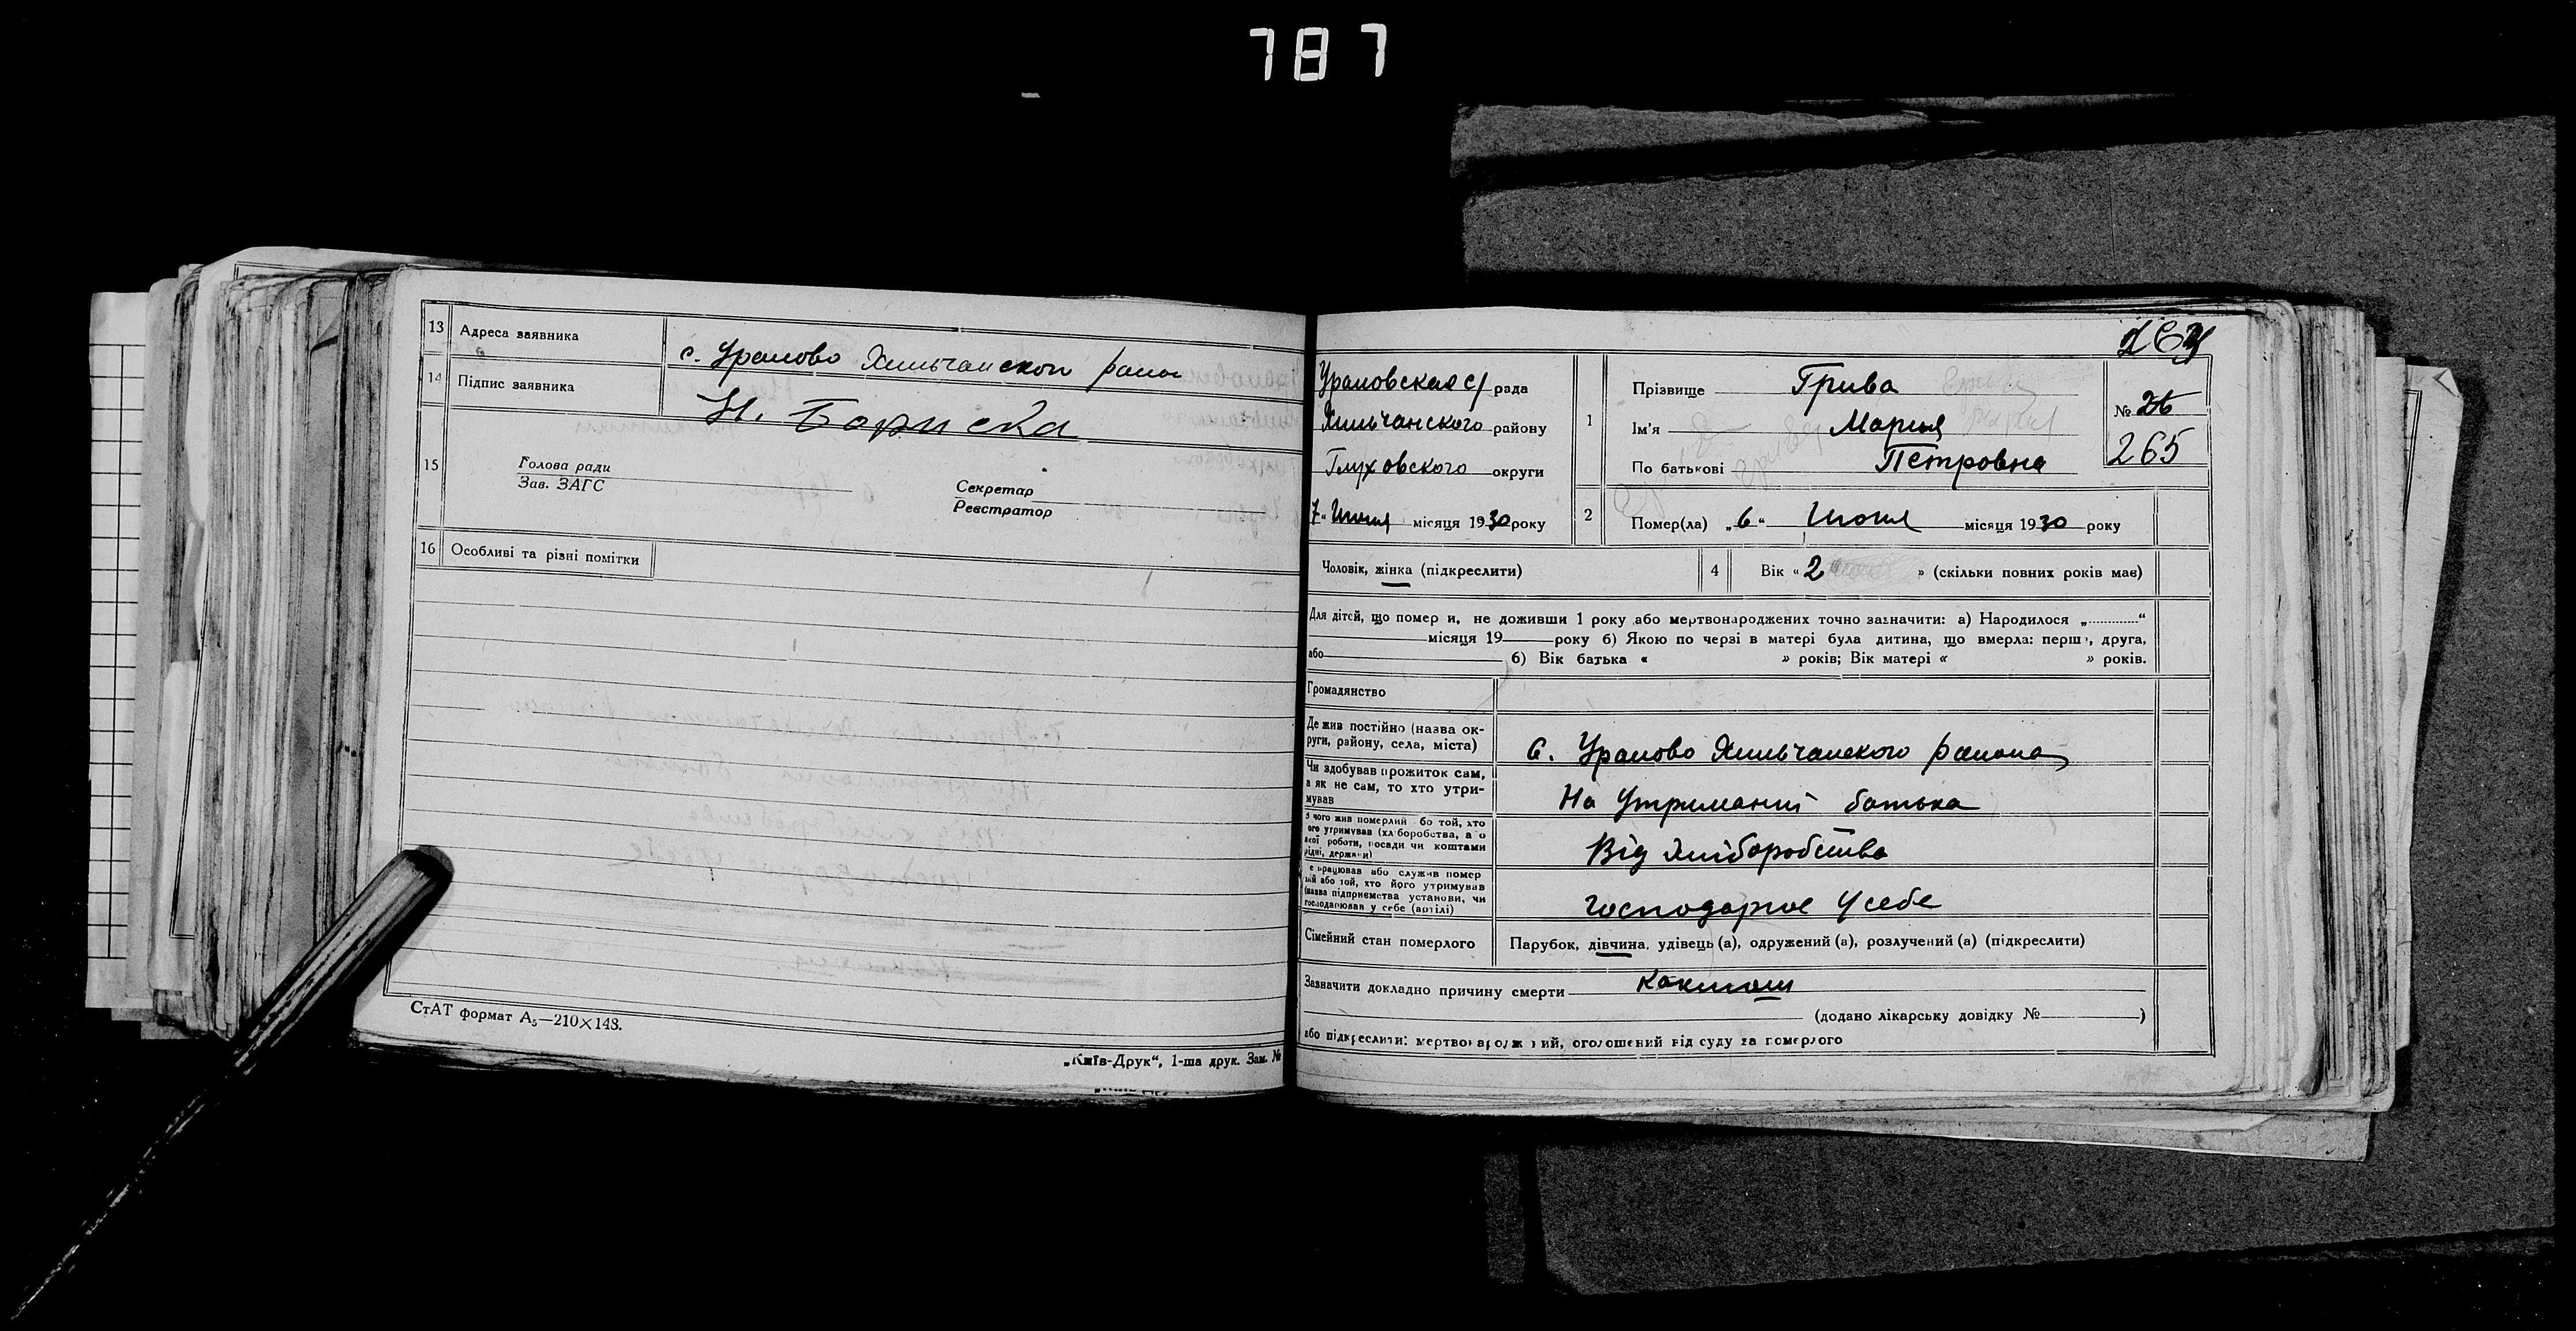 787
13 Адреса заявника с. Уралово Хильчанского район
14 Підпис заявника Н. Бориска
15 Голова ради
Зав. ЗАГС
Секретар
Реєстратор
16 Особливі та різні помітки
СтАТ формат А₅—210×148.
„Київ-Друк“, 1-ша друк. Зам. №
Ураловская с/ рада
Хильчанского району
Глуховского округи
7 „ Июля місяця 1930 року
1 Прізвище Грива
Ім'я Мария
По батькові Петровна
№ 26
265
2 Помер(ла) „6“ Июля місяця 1930 року
Чоловік, жінка (підкреслити)
4 Вік « 2 » (скільки повних років має)
Для дітей, що помер и, не доживши 1 року або мертвонароджених точно зазначити: а) Народилося „............“
місяця 19 року б) Якою по черзі в матері була дитина, що вмерла: перш , друга,
або б) Вік батька « » років; Вік матері « » років.
Громадянство
Де жив постійно (назва ок-
руги, району, села, міста)
с. Уралово Хильчанского района
Чи здобував прожиток сам,
а як не сам, то хто утри-
мував
На утриманні батька
чого жив померлий бо той, хто
ого утримував (хл боробства, а о
якої роботи, посади чи коштами
рідні, держави)
Від хліборобства
е працював або служив помер
ий або той, хто його утримував
(назва підприємства установи, чи
господарював у себе (артілі)
господарює у себе
Сімейний стан померлого Парубок, дівчина, удівець (а), одружений (а), розлучений (а) (підкреслити)
Зазначити докладно причину смерти
(додано лікарську довідку № )
або підкреслити: мертвонародж ний, оголошений від суду за померлого